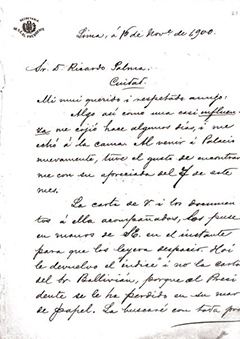 Lima, á 16 de Nov.e de 1900.
Sr. D. Ricardo Palma.
Ciudad.
Mi mui querido i respetado amigo:
Algo asi como una casi influen-
za me cojió hace algunos dias, i me
echó á la cama. Al venir á Palacio
nuevamente, tuve el gusto de encontrar
me con su apreciada del 7 de este
mes.
La carta de V i los documen-
tos á ella acompañados, los puse
en manos de S.E. en el instante
para que los leyera despacio. Hoi
le devuelvo el índice i no la carta
del Sr. Ballivián, porque al Presi
dente se le ha perdido en su mar
de papel. La buscaré con toda pro